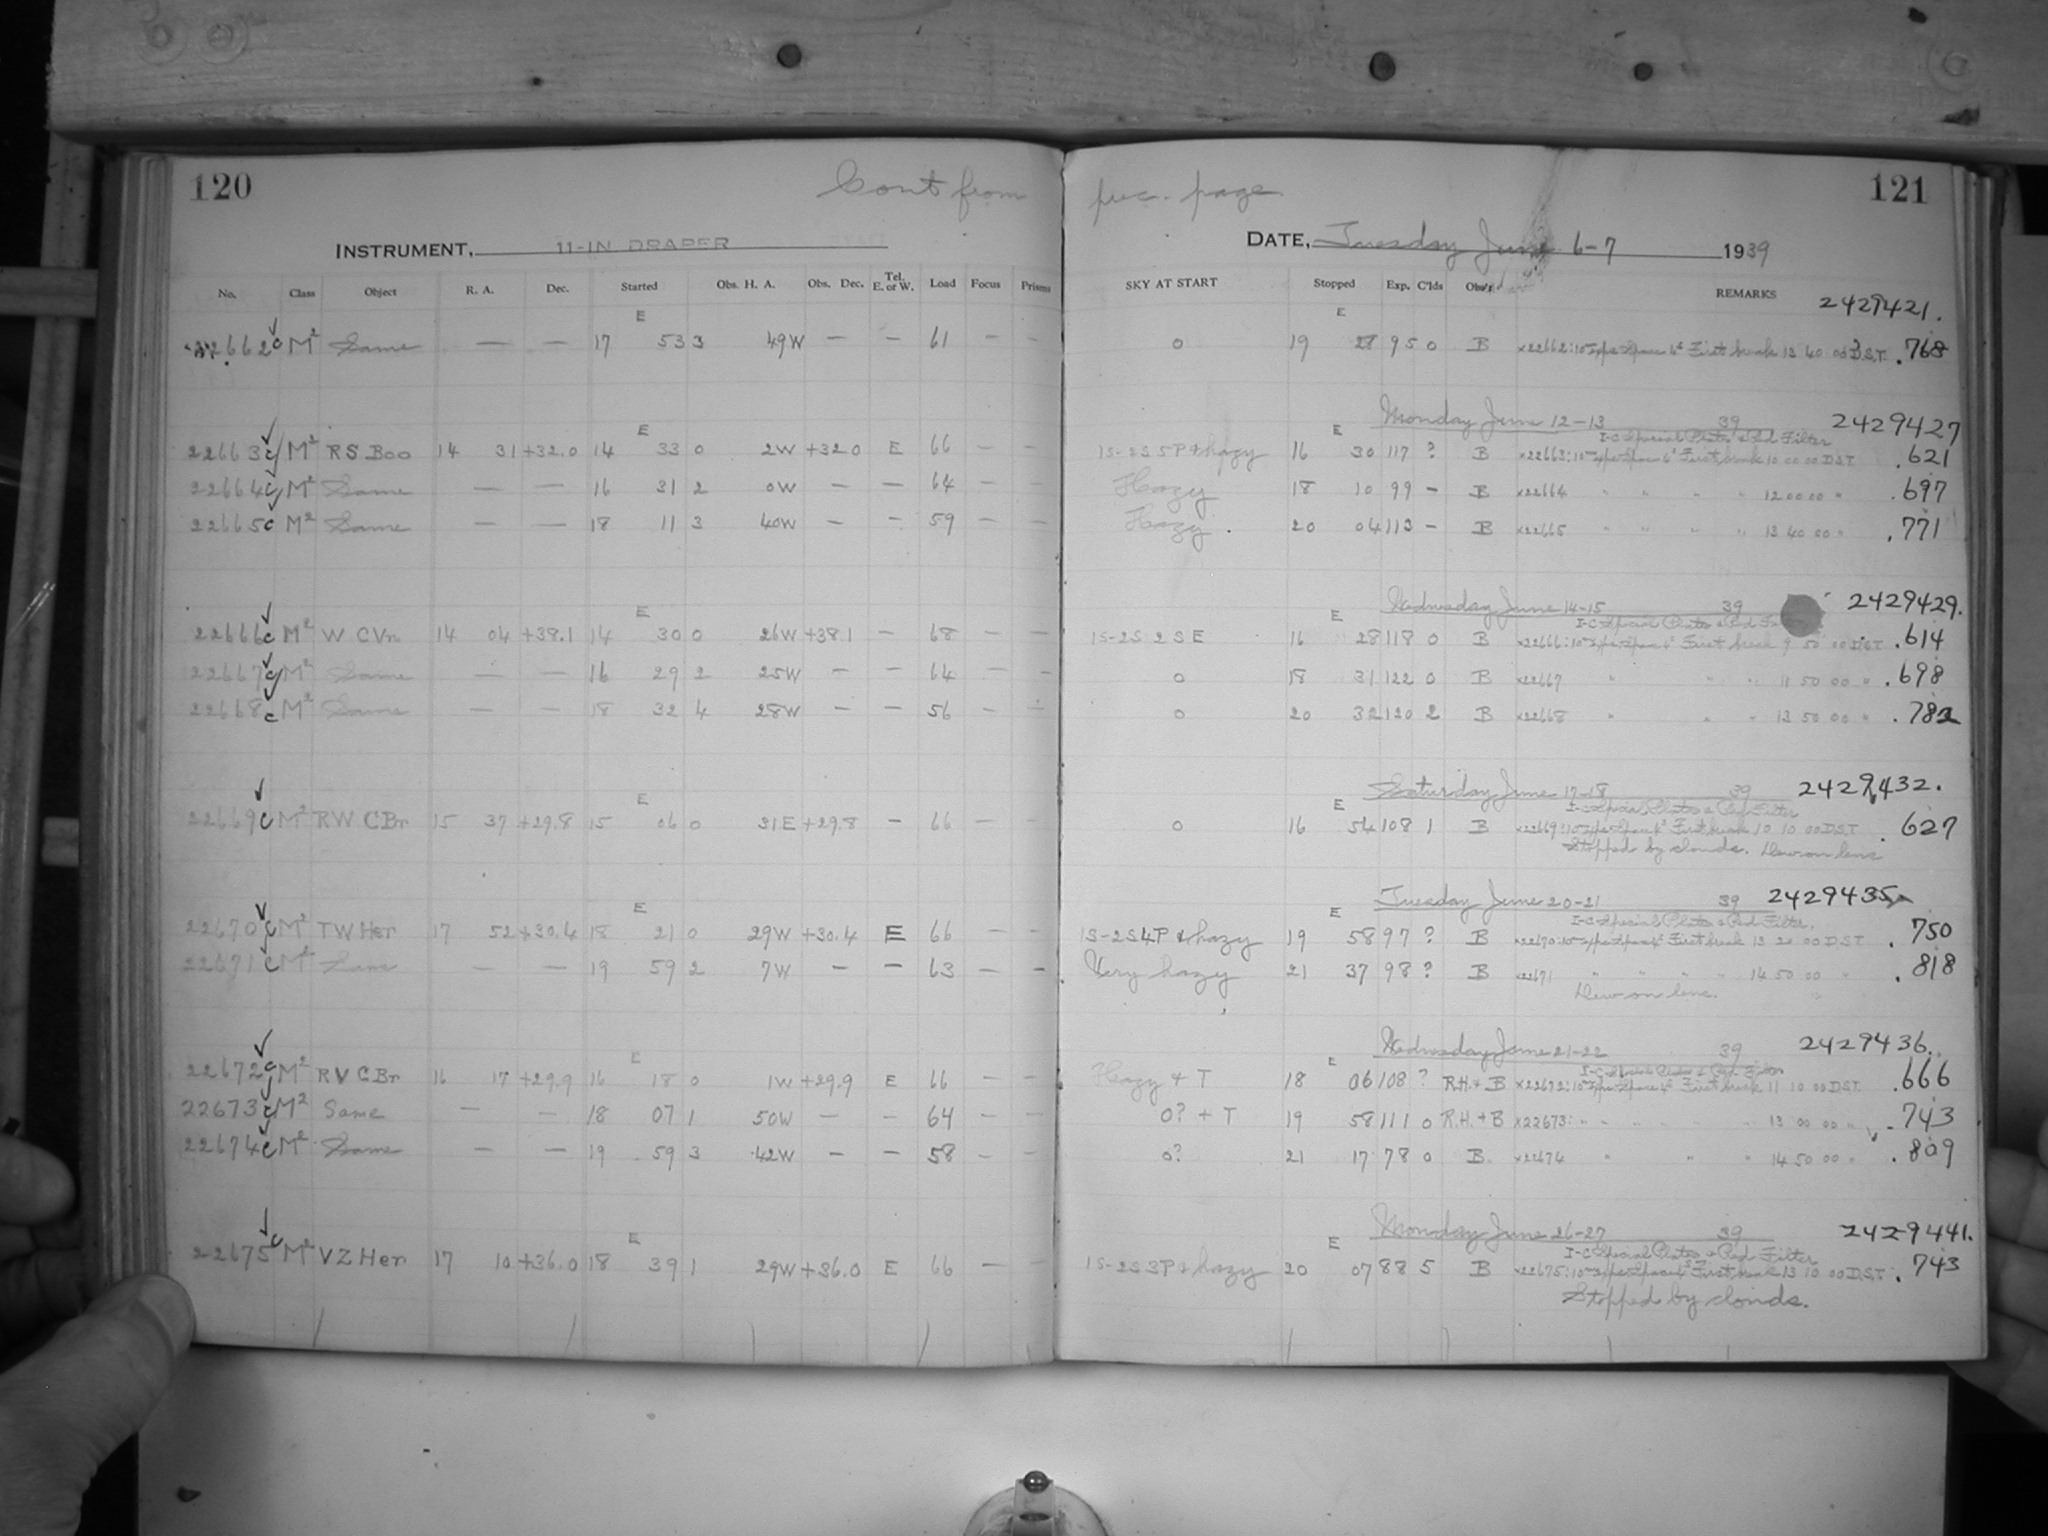 120 Cont from prec. page 121
INSTRUMENT, 11-IN DRAPER DATE, Tuesday June 6-7 1939
No. Class Object R. A. Dec. Started Obs. H. A. Obs. Dec. Tel. E. or W. Load Focus Prisms SKY AT START Stopped Exp. C'lds Obs'r REMARKS 2429421.
E E
22662 c M² Same — — 17 53 3 49W — — 61 — — 0 19 28 95 0 B x22662: First break 13 40 00 D.S.T. .768
Monday June 12-13 39 2429427
E E I-C Special Plates & Red Filter
22663 M² RS Boo 14 31 +32.0 14 33 0 2W +32.0 E 66 — — 1S-2S 5P & hazy 16 30 117 ? B x22663: First break 10 00 00 D.S.T. .621
22664 M² Same — — 16 31 2 0W — — 64 — — Hazy 18 10 99 — B x22664 " " " " 12 00 00 " .697
22665 c M² Same — — 18 11 3 40W — — 59 — — Hazy. 20 04 113 — B x22665 " " " " 13 40 00 " .771
Wednesday June 14-15 39 2429429.
E E I-C Special Plates & Red
22666 c M² W CVn 14 04 +38.1 14 30 0 26W +38.1 — 68 — — 1S-2S 2SE 16 28 118 0 B x22666: First break 9 50 00 D.S.T. .614
22667 M² Same — — 16 29 2 25W — — 64 — — 0 18 31 122 0 B x22667 " " " 11 50 00 " .698
22668 c M² Same — — 18 32 4 28W — — 56 — — 0 20 32 120 2 B x22668 " " " 13 50 00 " .782
Saturday June 17-18 39 2429432.
E E I-C Special Plates & Red Filter
22669 c M² RW CBr 15 37 +29.8 15 06 0 31E +29.8 — 66 — — 0 16 54 108 1 B x22669: First break 10 10 00 D.S.T. .627
Stopped by clouds. Dew on lens
Tuesday June 20-21 39 2429435
E E I-C Special Plates & Red Filter.
22670 c M² TW Her 17 52 +30.4 18 21 0 29W +30.4 E 66 — — 1S-2S 4P & hazy 19 58 97 ? B x22670: First break 13 20 00 D.S.T. .750
22671 c M² Same — — 19 59 2 7W — — 63 — — Very hazy 21 37 98 ? B x22671 " " " " 14 50 00 " .818
Dew on lens.
Wednesday June 21-22 39 2429436.
E E I-C Special Plates & Red Filter
22672 M² RV CBr 16 17 +29.9 16 18 0 1W +29.9 E 66 — — Hazy + T 18 06 108 ? R.H. + B x22672: First break 11 10 00 D.S.T. .666
22673 M² Same — — 18 07 1 50W — — 64 — — 0? + T 19 58 111 0 R.H. + B x22673: " " " " 13 00 00 " .743
22674 c M² Same — — 19 59 3 42W — — 58 — — 0? 21 17 78 0 B. x22674 " " " 14 50 00 " .809
Monday June 26-27 39 2429441.
E E I-C Special Plates & Red Filter
22675 c M² VZ Her 17 10 +36.0 18 39 1 29W +36.0 E 66 — — 1S-2S 3P & hazy 20 07 88 5 B x22675: First break 13 10 00 D.S.T. .743
Stopped by clouds.